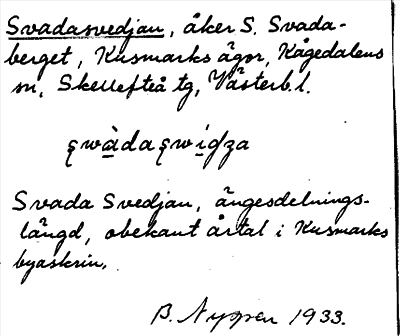 Svadasvedjan, åker S. Svada-
berget, Kusmarks ägor, Kågedalens
sn, Skellefteå tg, Västerb. l.
Svada Svedjan, ängesdelnings-
längd, obekant årtal i Kusmarks
byaskrin.
B. Nygren 1933.